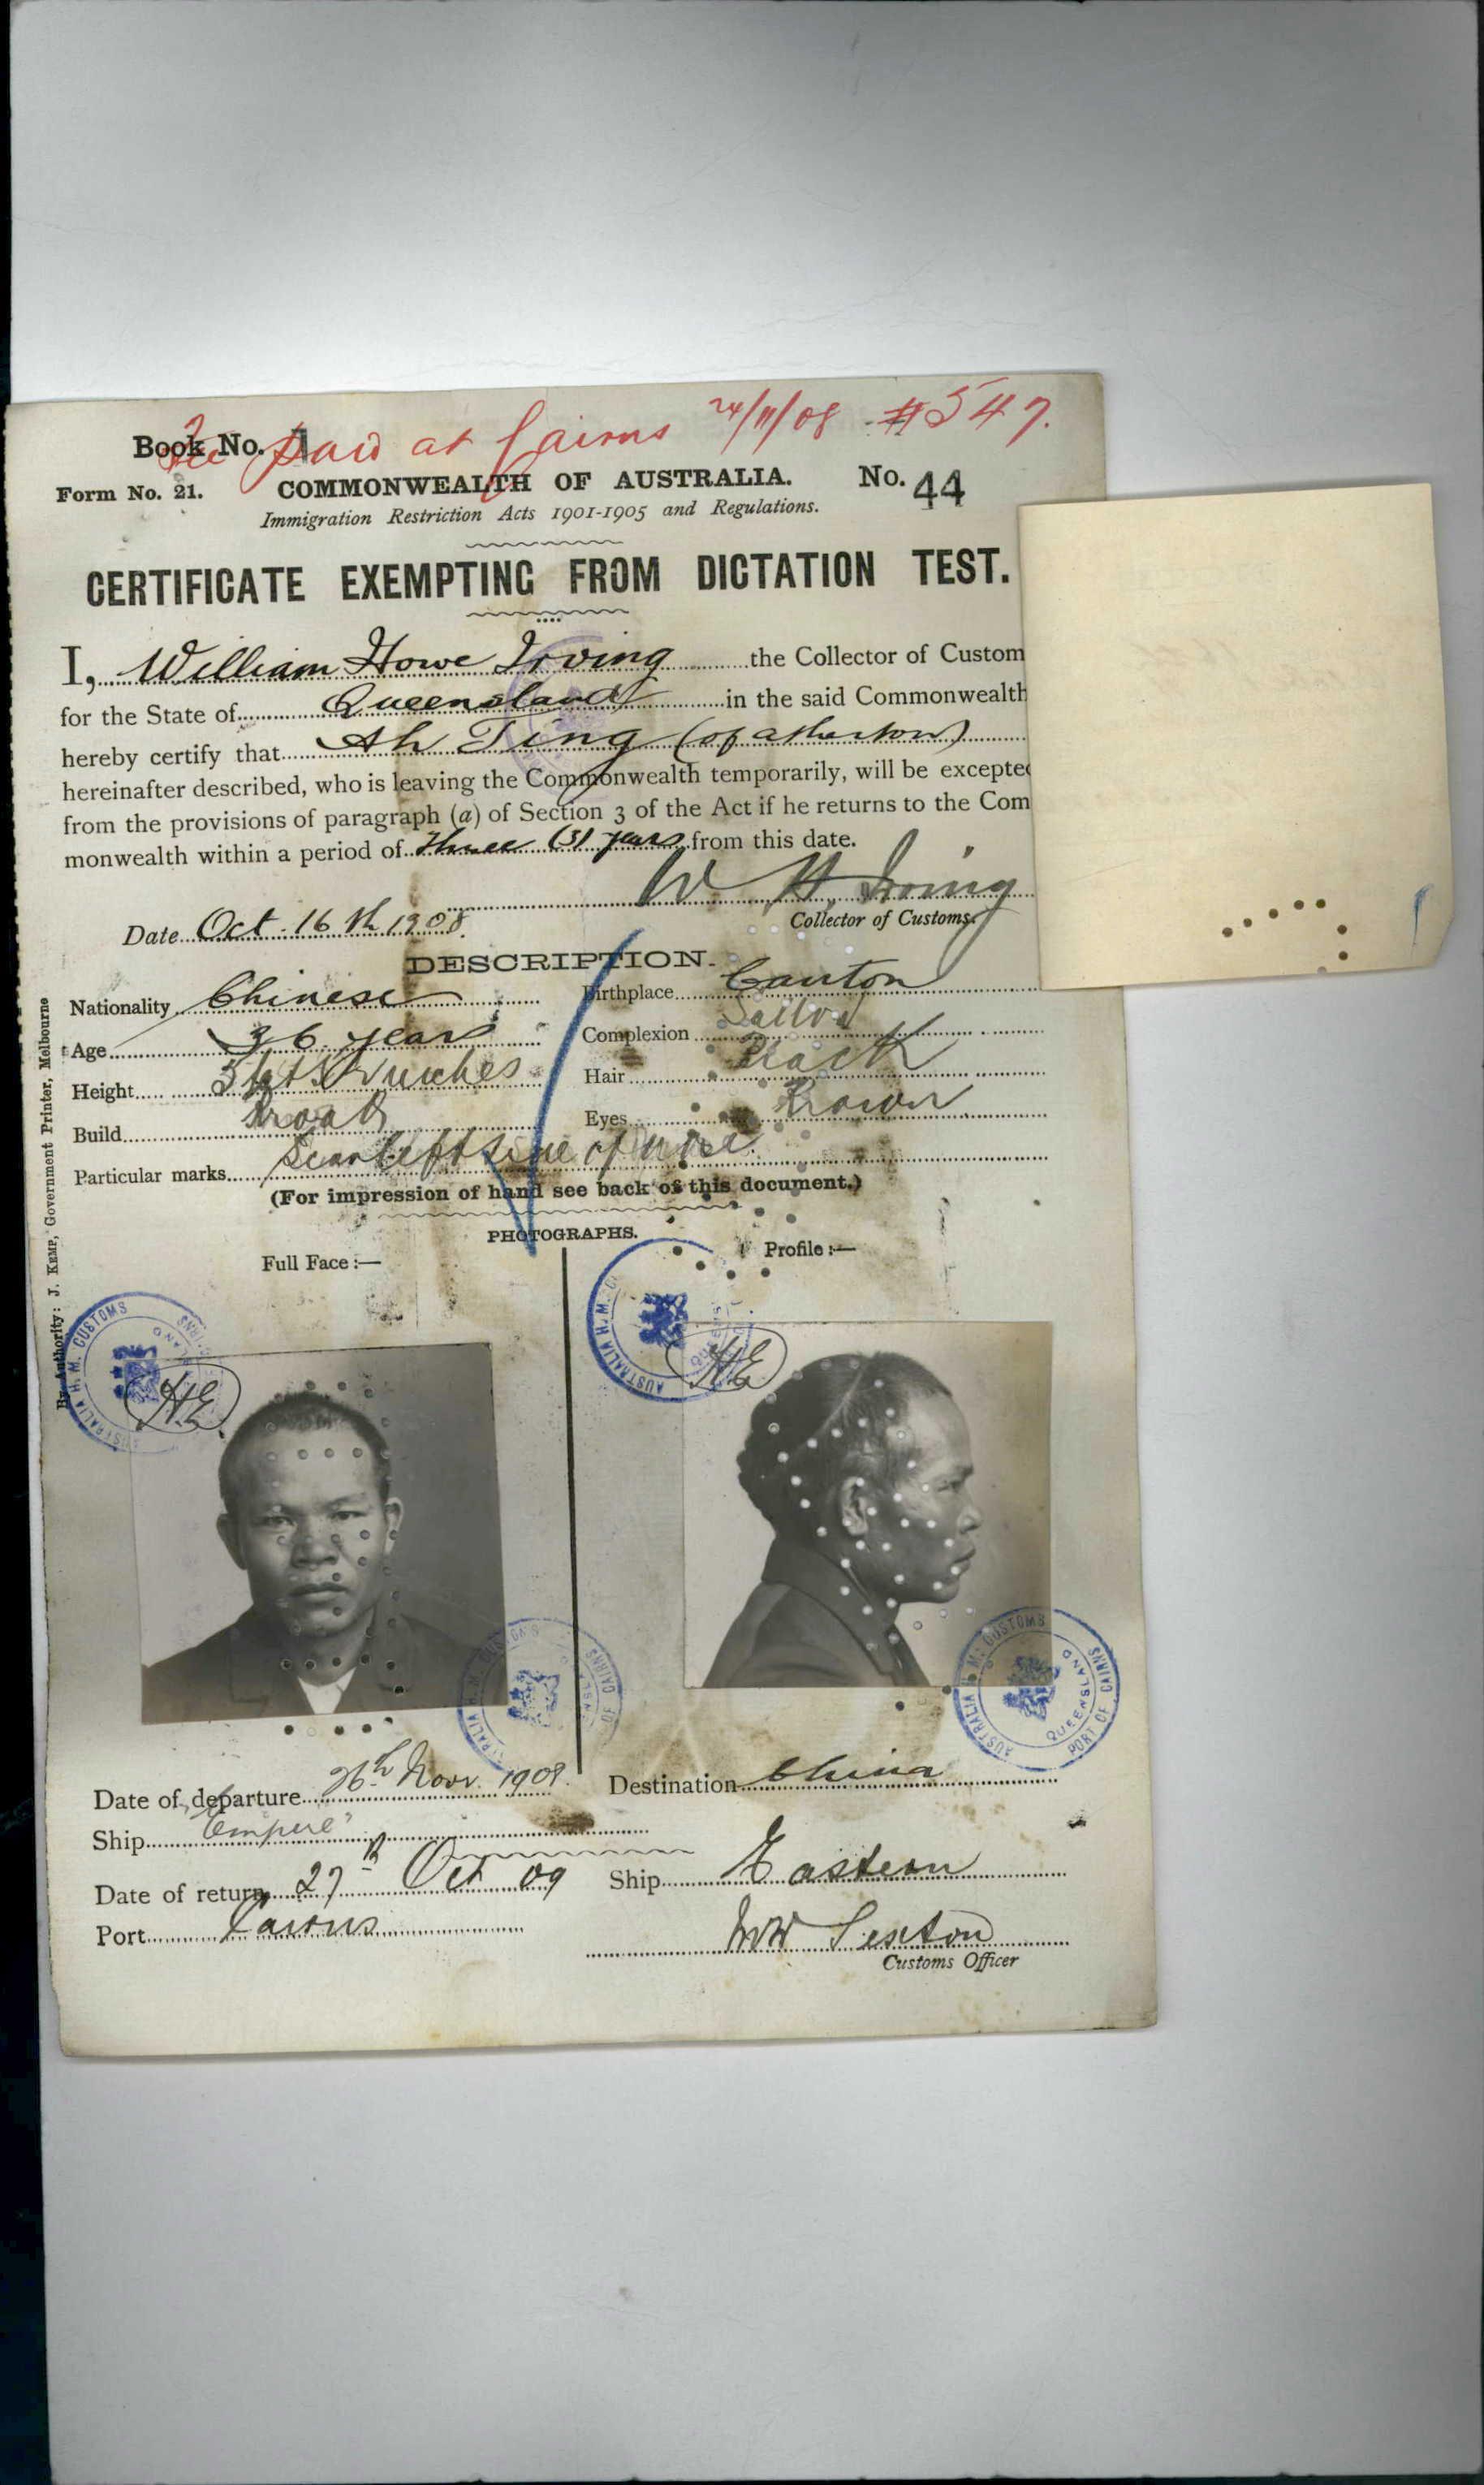 Fee paid at Cairns 24/11/08 #547.
Book No. 1
Form No. 21. COMMONWEALTH OF AUSTRALIA. No. 44
Immigration Restriction Acts 1901-1905 and Regulations.
CERTIFICATE EXEMPTING FROM DICTATION TEST.
I, William Howe Irving the Collector of Custom
for the State of Queensland in the said Commonwealth
hereby certify that Ah Ting (of Atherton)
hereinafter described, who is leaving the Commonwealth temporarily, will be excepted
from the provisions of paragraph (a) of Section 3 of the Act if he returns to the Com
monwealth within a period of three (3) years from this date.
W H Irving
Date Oct. 16th 1908. Collector of Customs.
DESCRIPTION.
Nationality Chinese Birthplace Canton
Age 36 years Complexion Sallow
Height 5 feet inches Hair Black
Build Broad Eyes Brown
Particular marks Scar left side of nose.
(For impression of hand see back of this document.)
PHOTOGRAPHS.
Full Face:— Profile:—
AUSTRALIA H. M. CUSTOMS CAIRNS
AUSTRALIA H. M. QUEENS
H.E.
H.E.
AUSTRALIA H. M. CUSTOMS OF CAIRNS
AUSTRALIA H. M. CUSTOMS QUEENSLAND PORT OF CAIRNS
Date of departure 26th Novr. 1908. Destination China
Ship "Empire"
Date of return 27th Oct 09 Ship Eastern
Port Cairns WW Sexton
Customs Officer
By Authority: J. KEMP, Government Printer, Melbourne